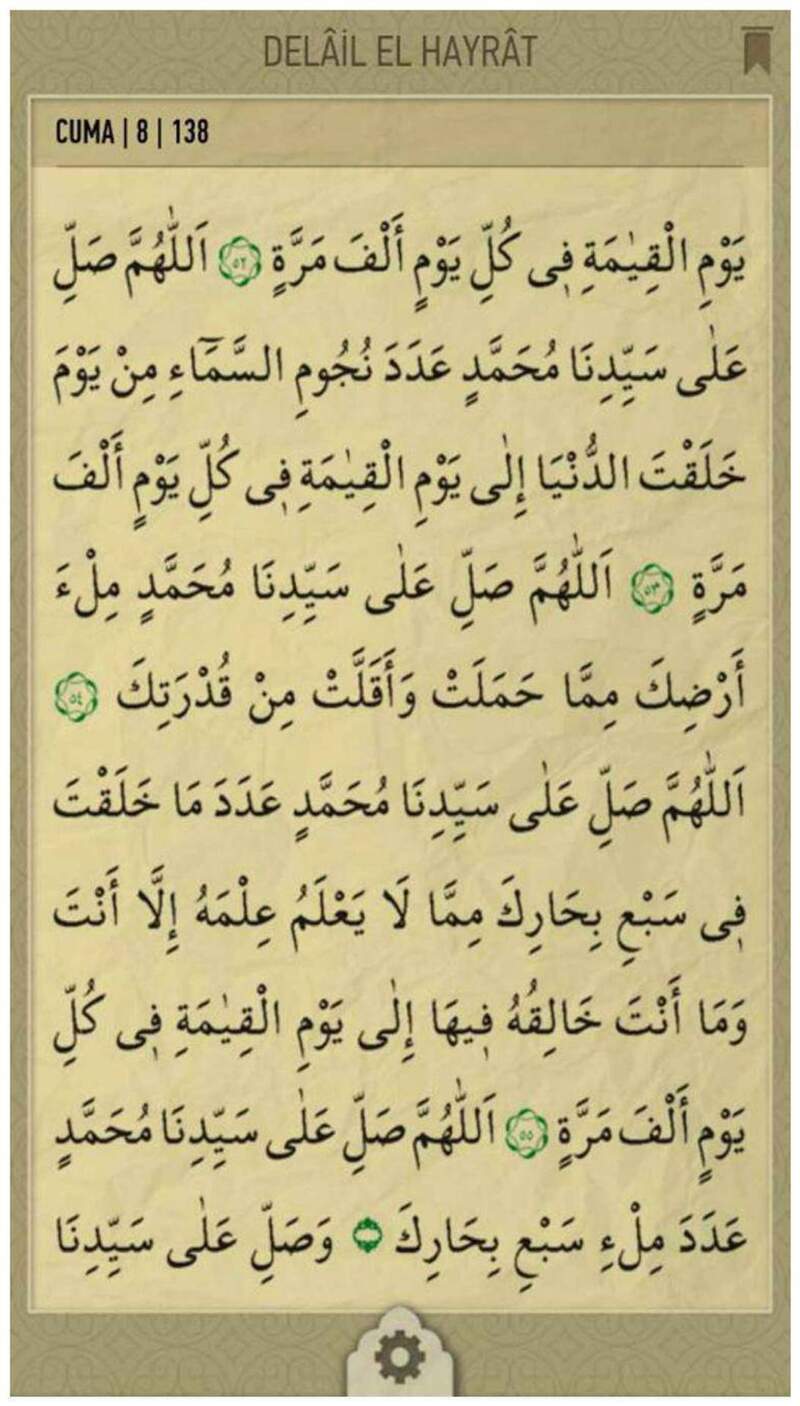 DELÂİL EL HAYRÂT
CUMA | 8 | 138
يَوْمِ الْقِيٰمَةِ فِى كُلِّ يَوْمٍ أَلْفَ مَرَّةٍ ٥٢ اَللّٰهُمَّ صَلِّ
عَلٰى سَيِّدِنَا مُحَمَّدٍ عَدَدَ نُجُومِ السَّمَٓاءِ مِنْ يَوْمَ
خَلَقْتَ الدُّنْيَا إِلٰى يَوْمِ الْقِيٰمَةِ فِى كُلِّ يَوْمٍ أَلْفَ
مَرَّةٍ ٥٣ اَللّٰهُمَّ صَلِّ عَلٰى سَيِّدِنَا مُحَمَّدٍ مِلْءَ
أَرْضِكَ مِمَّا حَمَلَتْ وَأَقَلَّتْ مِنْ قُدْرَتِكَ ٥٤
اَللّٰهُمَّ صَلِّ عَلٰى سَيِّدِنَا مُحَمَّدٍ عَدَدَ مَا خَلَقْتَ
فِى سَبْعِ بِحَارِكَ مِمَّا لَا يَعْلَمُ عِلْمَهُ إِلَّا أَنْتَ
وَمَا أَنْتَ خَالِقُهُ فِيهَا إِلٰى يَوْمِ الْقِيٰمَةِ فِى كُلِّ
يَوْمٍ أَلْفَ مَرَّةٍ ٥٥ اَللّٰهُمَّ صَلِّ عَلٰى سَيِّدِنَا مُحَمَّدٍ
عَدَدَ مِلْءِ سَبْعِ بِحَارِكَ وَصَلِّ عَلٰى سَيِّدِنَا